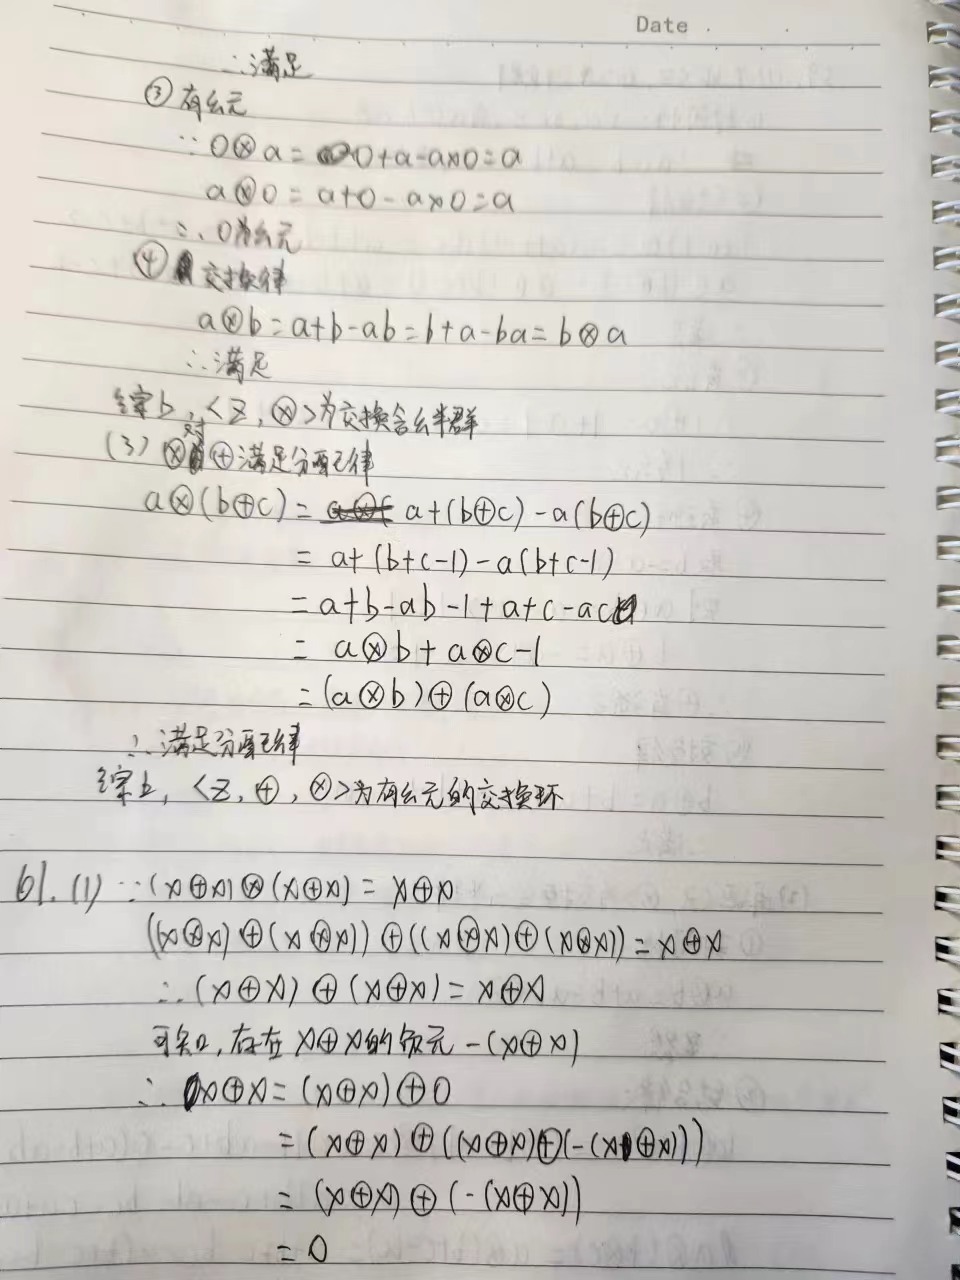 Date
∴满足
③ 有幺元
∵ 0⊗a = 0+a-a×0=a
a⊗0 = a+0-a×0=a
∴ 0为幺元
④ 交换律
a⊗b=a+b-ab=b+a-ba=b⊗a
∴满足
综上,<Z,⊗>为交换含幺半群
(3) ⊗对⊕满足分配律
a⊗(b⊕c) = a+(b⊕c)-a(b⊕c)
= a+(b+c-1)-a(b+c-1)
= a+b-ab-1+a+c-ac
= a⊗b+a⊗c-1
=(a⊗b)⊕(a⊗c)
∴满足分配律
综上,<Z,⊕,⊗>为有幺元的交换环
61.(1) ∵(x⊕x)⊗(x⊕x)=x⊕x
((x⊗x)⊕(x⊗x))⊕((x⊗x)⊕(x⊗x))=x⊕x
∴(x⊕x)⊕(x⊕x)=x⊕x
可知,存在x⊕x的负元-(x⊕x)
∴ x⊕x=(x⊕x)⊕0
=(x⊕x)⊕((x⊕x)⊕(-(x⊕x)))
=(x⊕x)⊕(-(x⊕x))
=0